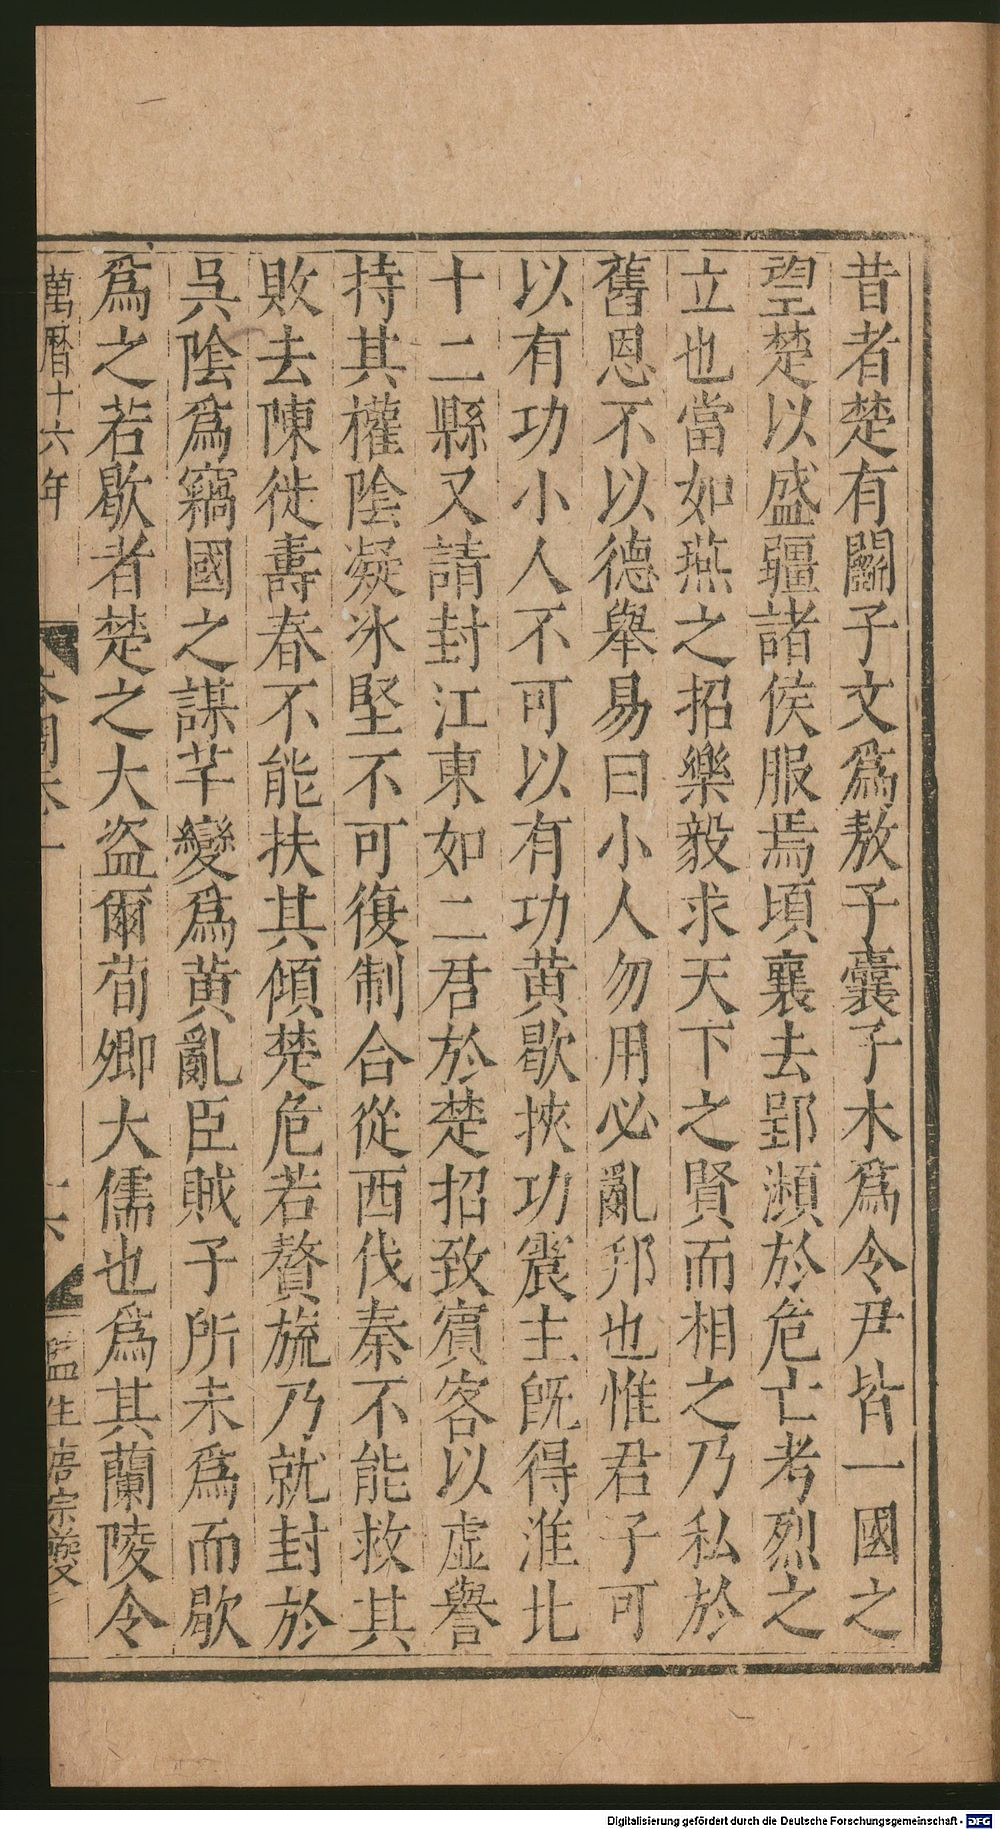 昔者楚有鬬子文爲敖子囊子木爲令尹皆一國之
望楚以盛疆諸侯服焉頃襄去郢瀕於危亡考烈之
立也當如燕之招樂毅求天下之賢而相之乃私於
舊恩不以德舉易曰小人勿用必亂邦也惟君子可
以有功小人不可以有功黄歇挾功震主旣得淮北
十二縣又請封江東如二君於楚招致賓客以虚譽
持其權陰凝冰堅不可復制合從西伐秦不能救其
敗去陳徙壽春不能扶其傾楚危若贅旒乃就封於
吳陰爲竊國之謀芊變爲黄亂臣賊子所未爲而歇
爲之若歇者楚之大盗爾荀卿大儒也爲其蘭陵令
萬曆十六年
監生唐宗
Digitalisierung gefördert durch die Deutsche Forschungsgemeinschaft - DFG